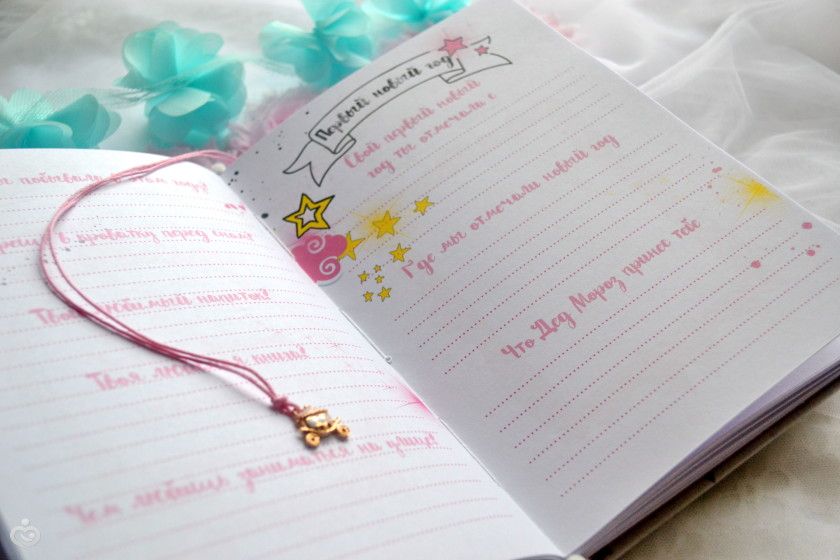 побывали в этом году?
в кроватку перед сном?
Твой любимый напиток?
Твоя книга?
Чем любишь заниматься на улице?
Первый новый год
Свой первый новый
год ты отмечали с
Где мы отмечали новый год
Что Дед Мороз принес тебе